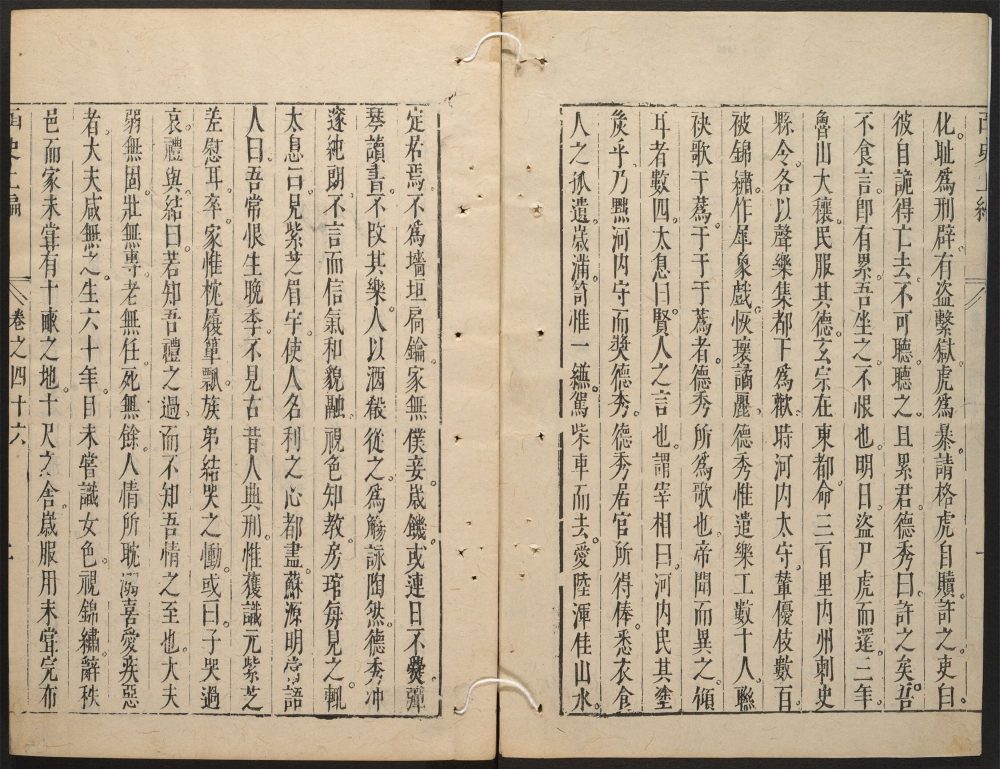 化。耻爲刑辟。有盗繫獄。虎爲暴。請格虎自贖。許之。吏白。
彼自詭得亡去。不可聽。聽之且累君。德秀曰。許之矣。吾
不食言。卽有累。吾坐之。不恨也。明日。盗尸虎而還。二年。
魯山大穰。民服其德。玄宗在東都。命三百里内州刺史
縣令。各以聲樂集都下爲歡。時河内太守。輦優伎數百。
被錦繡。作犀象戲。恢瓌譎麗。德秀惟遣樂工數十人。聯
袂歌于蔿。于于于蔿者。德秀所爲歌也。帝聞而異之。傾
耳者數四。太息曰。賢人之言也。謂宰相曰。河内民其塗
炭乎。乃黜河内守而獎德秀。德秀居官所得俸。悉衣食
人之孤遺。歲滿。笥惟一縑。駕柴車而去。愛陸渾佳山水。
定居焉。不爲墻垣扃鑰。家無僕妾。歲饑。或連日不㸑。彈
琴讀書。不改其樂。人以酒殽從之。爲觴詠陶然。德秀冲
邃純朗。不言而信。氣和貌融。視色知教。房琯每見之。輒
太息曰。見紫芝眉宇。使人名利之心都盡。蘇源明嘗語
人曰。吾常恨生晚季。不見古昔人典刑。惟獲識元紫芝
差慰耳。卒。家惟枕履簞瓢。族弟結哭之慟。或曰。子哭過
哀。禮與。結曰。若知吾禮之過。而不知吾情之至也。大夫
弱無固。壯無專。老無任。死無餘。人情所耽溺喜愛疾惡
者。大夫咸無之。生六十年。目未嘗識女色。視錦繡。辭秩
邑而家未嘗有十畝之地。十尺之舍。歲服用未嘗完布
卷之四十六